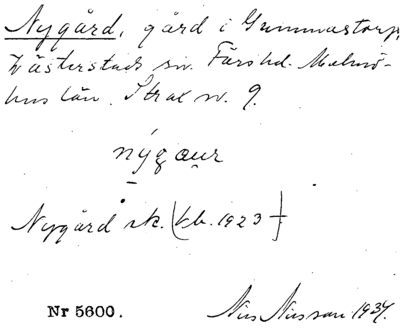 Nygård, gård i Gummastorp,
Västerstads sn. Färs hd. Malmö-
hus län. Strax n. 9.
nýgaur
Nygård sk. (kb. 1923-)
Nr 5600.
Nils Nilsson 1934.